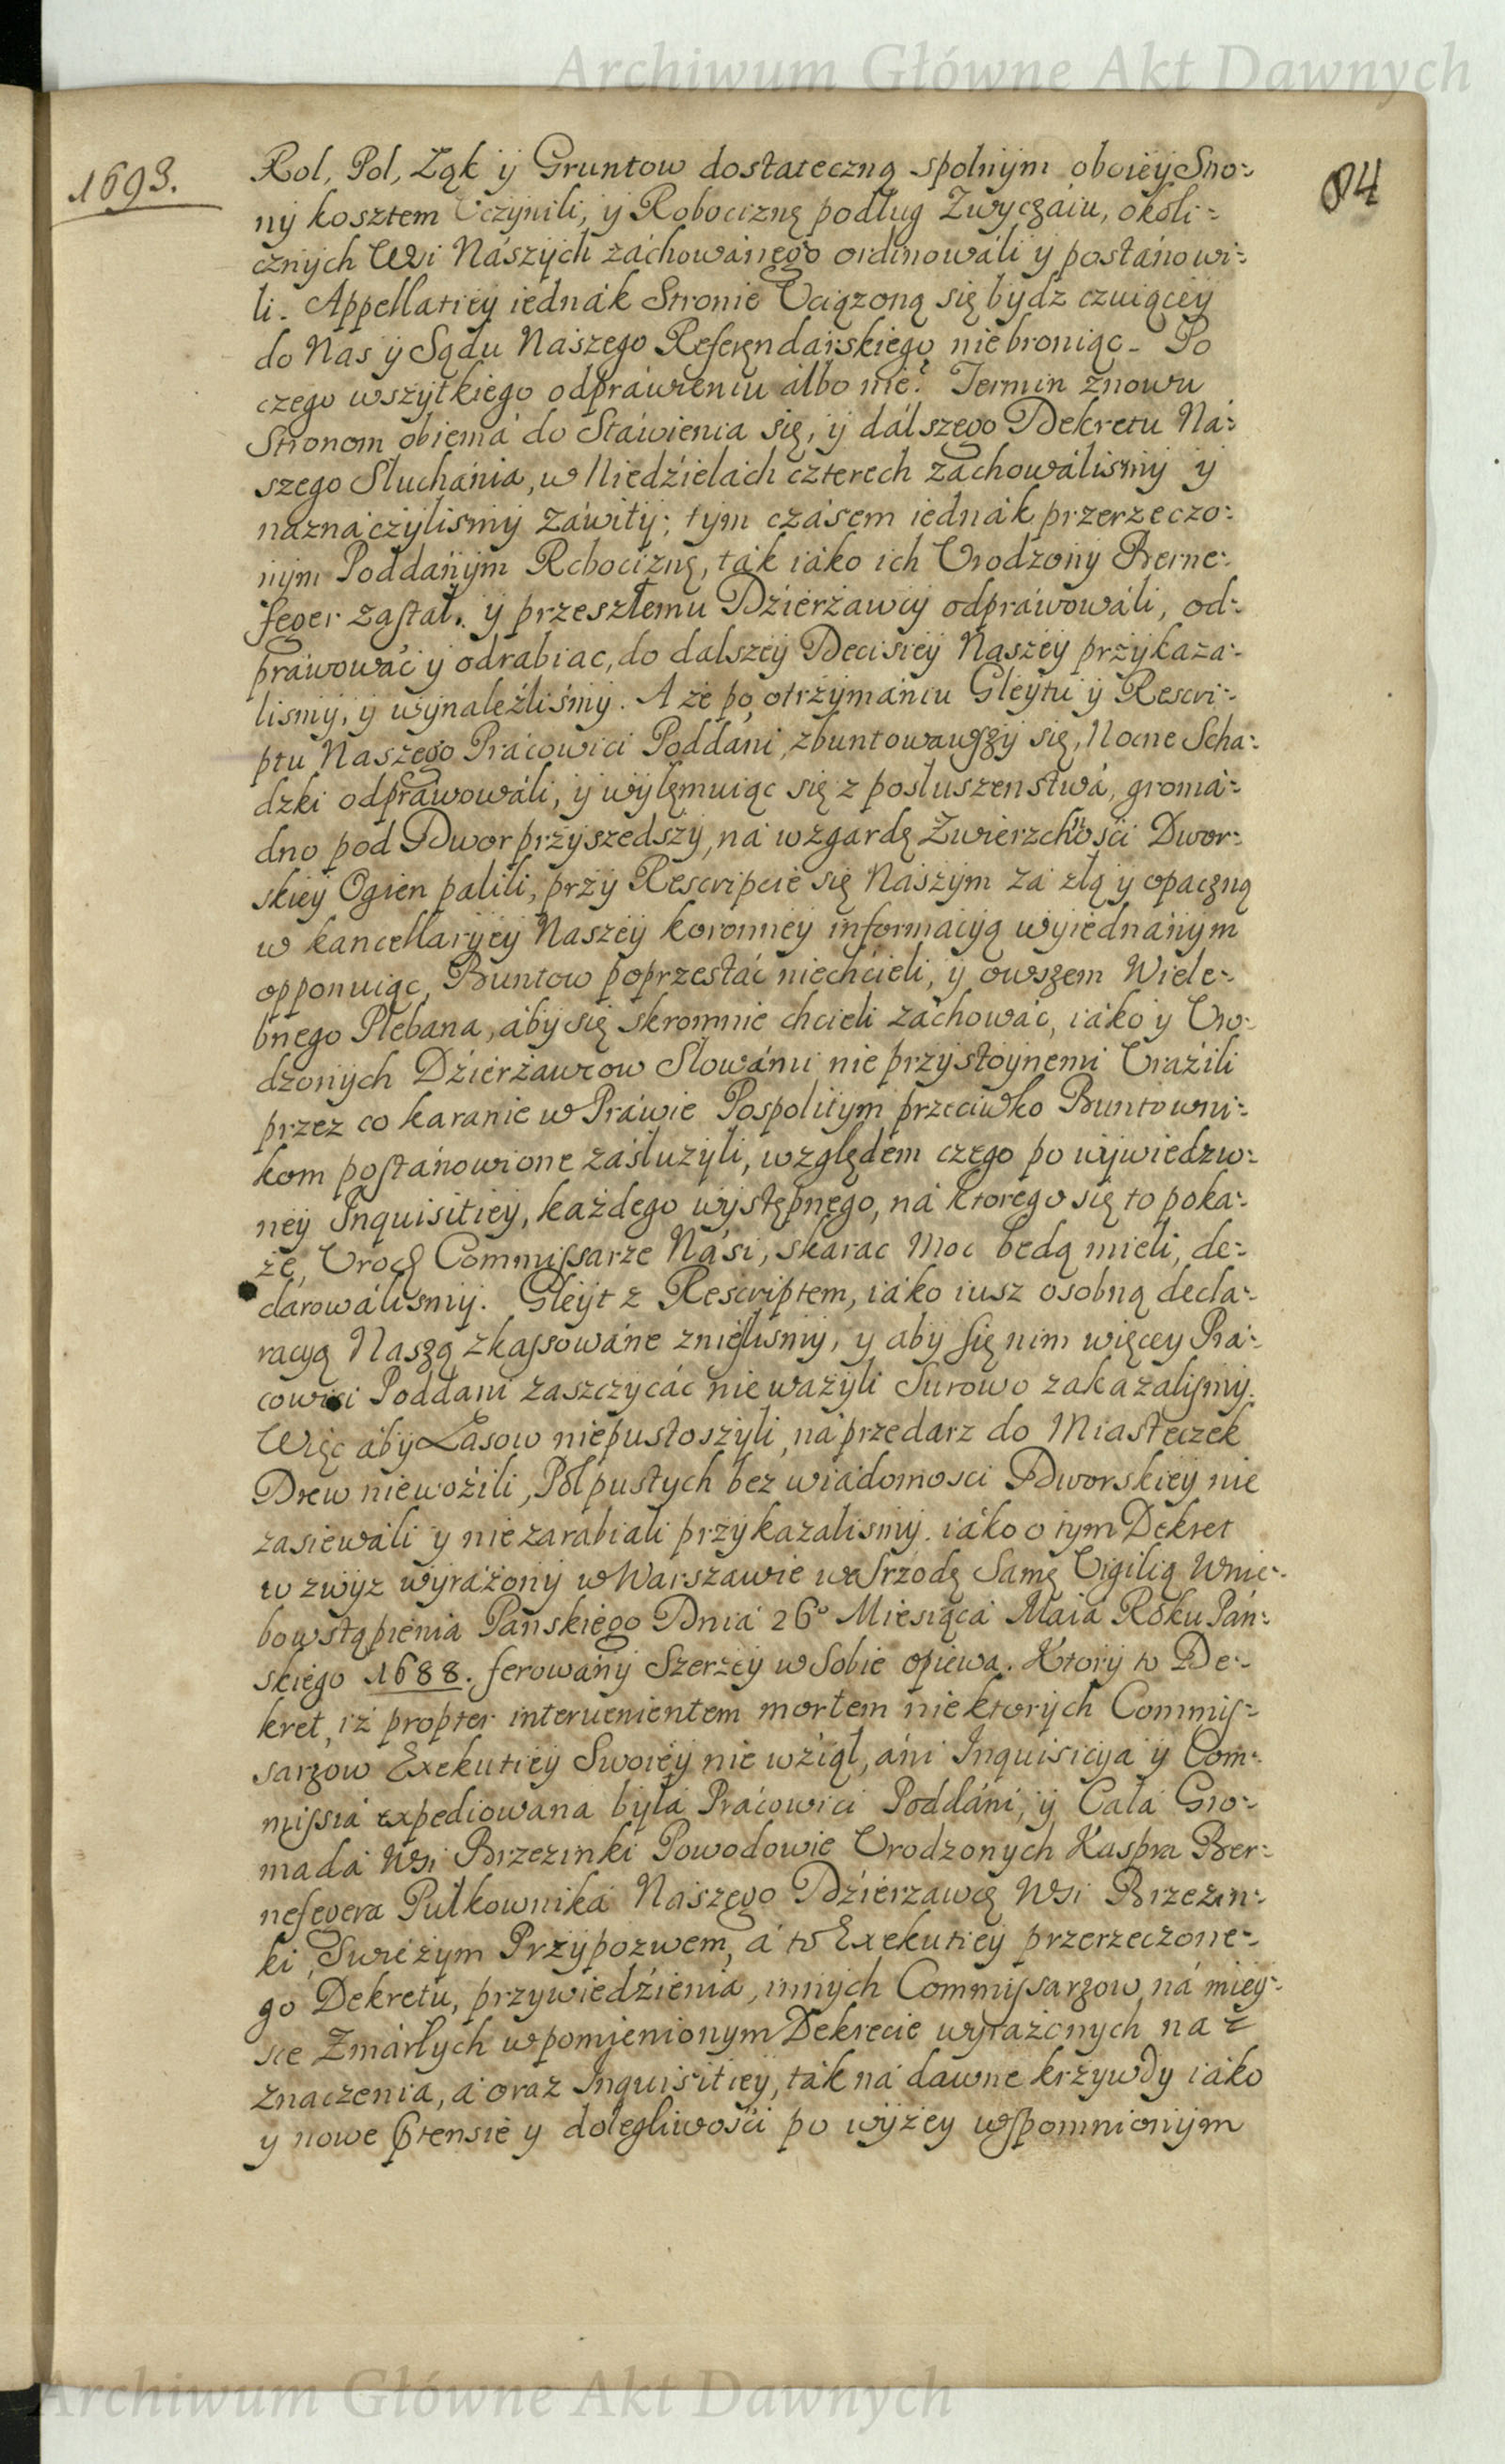 Archiwum Główne Akt Dawnych
1693.
84
Rol, Pol, Łąk ÿ Gruntow dostateczną spolnÿm oboieÿ Stro-
nÿ kosztem Uczÿnili, ÿ Robociznę podług Zwyczaiu, okoli-
cznÿch Wsi Nászÿch záchowánego ordinowáli ÿ postánowi-
li. Appellatieÿ iednák Stronie Uciązoną się bÿdz czuiąceÿ
do Nas ÿ Sądu Naszego Referendarskiego niebroniąc. Po
czego wszÿtkiego odpráwieniu álbo nie? Termin znowu
Stronom obiemá do Stáwienia się, ÿ dálszego Dekretu Ná-
szego Słuchánia, w Niedźielách czterech záchowálismÿ ÿ
náznáczÿlismÿ záwitÿ; tÿm czásem iednák przerzeczo-
nÿm Poddánÿm Robociznę, ták iáko ich Urodzonÿ Berne-
feger zastał, ÿ przeszłemu Dźierżawcÿ odpráwowáli, od-
práwowáć ÿ odrabiac, do dalszeÿ Decisieÿ Naszeÿ przÿkaza-
lismÿ, ÿ wÿnaleźliśmÿ. A że po otrzÿmániu Gleÿtu ÿ Rescri-
ptu Naszego Prácowici Poddáni, zbuntowawszÿ się, Nocne Scha-
dzki odpráwowáli, ÿ wÿłęmuiąc się z posłuszenstwá, gromá-
dno pod Dwor przÿszedszÿ, ná wzgardę Zwierzchności Dwor-
skieÿ Ogien palili, przÿ Rescripcie się Naszÿm zá złą ÿ opaczną
w kancellarÿeÿ Naszeÿ koronneÿ informácÿą wÿiednánÿm
opponuiąc, Buntow poprzestáć niechćieli, ÿ owszem Wiele-
bnego Plebana, ábÿ się skromnie chcieli záchowáć, iáko ÿ Uro-
dzonÿch Dźierżawcow Słowámi nieprzÿstoÿnemi Urázili
przez co karanie w Práwie Pospolitÿm przeciwko Buntowni-
kom postánowione zásłużÿli, względem czego po wÿwiedzio-
neÿ Inquisitieÿ, każdego wÿstępnego, ná ktorego się to poka-
że, Urodz Commissarze Nási, skarac Moc będą mieli, de-
clarowálismÿ. Gleÿt z Rescriptem, iáko iusz osobną decla-
racÿą Naszą zkassowáne znieślismÿ, y aby się nim więceÿ Prá-
cowici Poddani zaszczÿcáć nieważÿli Surowo zakazalismÿ.
Więc ábÿ Lasow niepustoszÿli, ná przedarz do Miasteczek
Drew niewoźili, Pol pustÿch bez wiádomosci Dworskieÿ nie
zasiewáli y niezarabiali przÿkazalismÿ. iáko o tÿm Dekret
w zwÿz wyráżonÿ w Warszawie we Srzodę Samę Vigilią Wnie-
bowstąpienia Panskiego Dniá 26° Miesiącá Maia Roku Pán-
skiego 1688. ferowánÿ Szerzeÿ w Sobie opiewa. Ktorÿ to De-
kret, iż propter intervenientem mortem niektorÿch Commis-
sarzow Exekutieÿ Swoieÿ nie wźiął, áni Inquisicÿa ÿ Com-
missiá expediowana byłá Prácowici Poddáni, ÿ Cała Gro-
madá Wsi Brzezinki Powodowie Urodzonych Kaspra Ber-
nefegera Pułkownika Naszego Dźierzawcę Wsi Brzezin-
ki, Swieżÿm Przÿpozwem, á to Exekutieÿ przerzeczone-
go Dekretu, przÿwiedźienia, innÿch Commissarzow ná mieÿ-
sce Zmárłÿch wpomienionym Dekrecie wÿrażonych na-
znaczenia, á oraz Inquisitieÿ, ták ná dawne krzÿwdÿ iáko
y nowe ptensie y dolegliwości po wÿżeÿ wspomnionÿm
Archiwum Główne Akt Dawnych